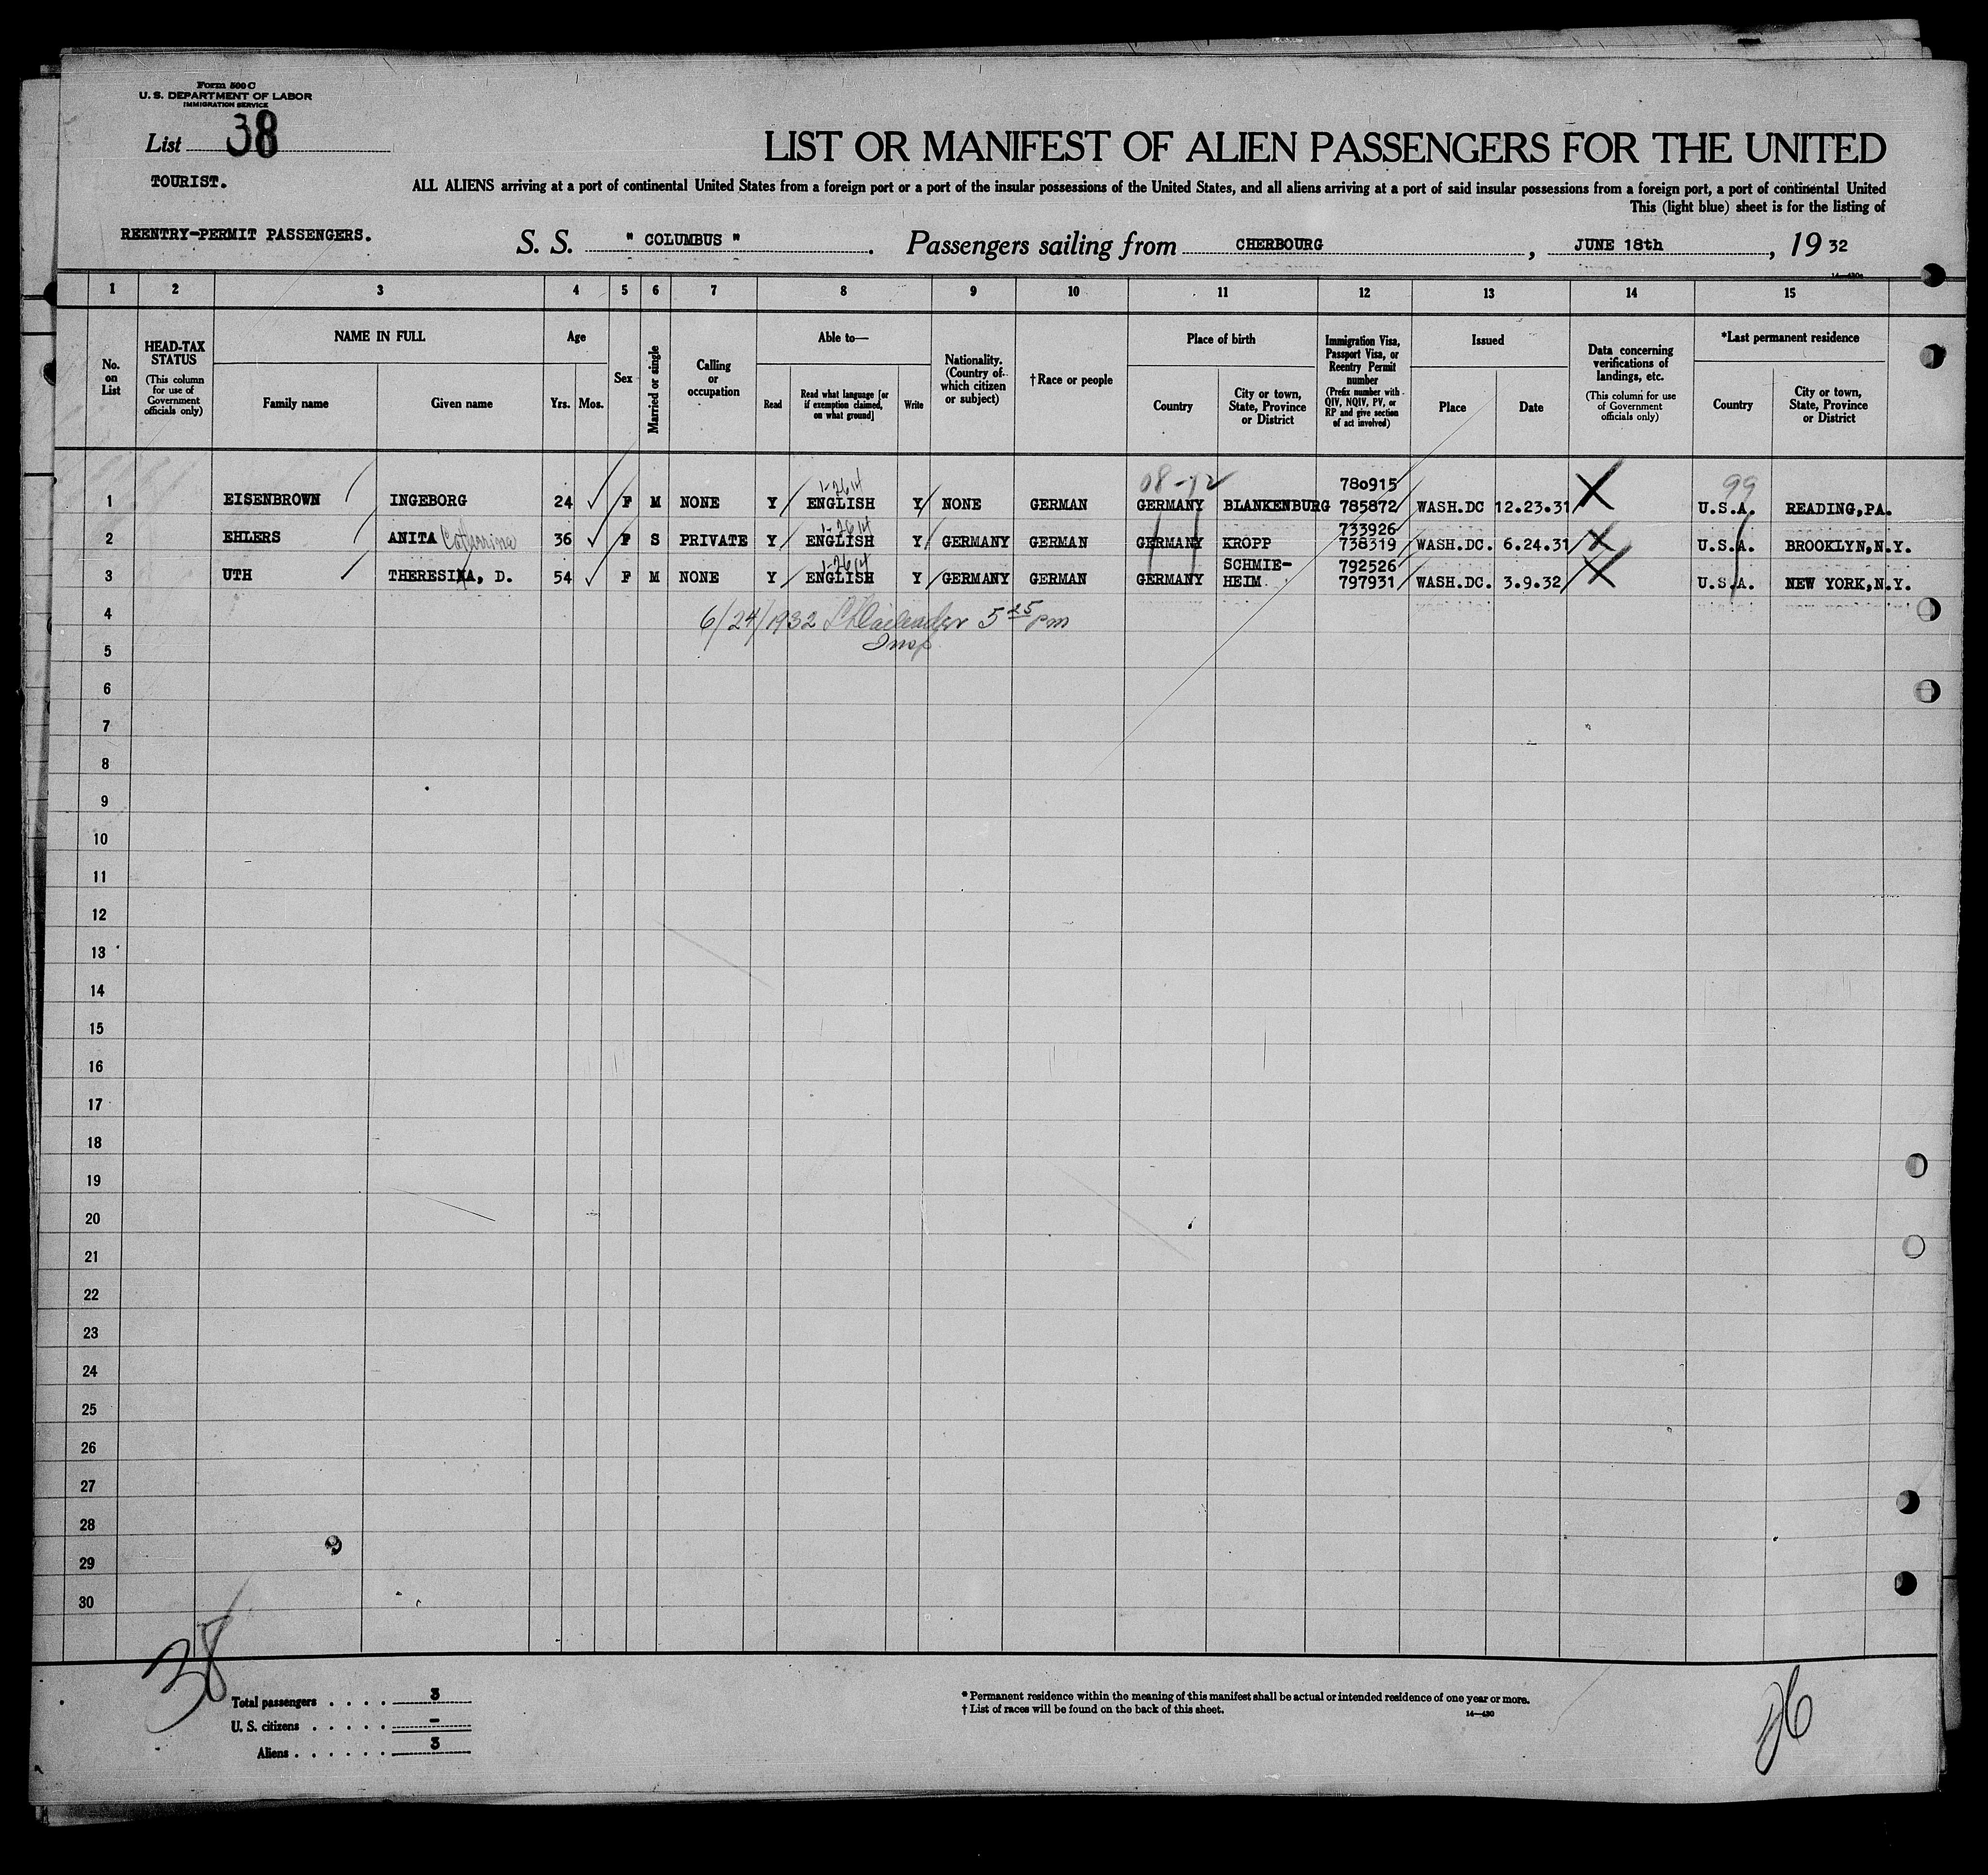 Form 500 C
U. S. DEPARTMENT OF LABOR
IMMIGRATION SERVICE
List 38
LIST OR MANIFEST OF ALIEN PASSENGERS FOR THE UNITED
TOURIST.
ALL ALIENS arriving at a port of continental United States from a foreign port or a port of the insular possessions of the United States, and all aliens arriving at a port of said insular possessions from a foreign port, a port of continental United
This (light blue) sheet is for the listing of
REENTRY-PERMIT PASSENGERS.
S. S. " COLUMBUS ". Passengers sailing from CHERBOURG, JUNE 18th, 19 32
1 2 3 4 5 6 7 8 9 10 11 12 13 14 15
No. on List
HEAD-TAX STATUS (This column for use of Government officials only)
NAME IN FULL
Family name Given name
Age
Yrs. Mos.
Sex
Married or single
Calling or occupation
Able to—
Read Read what language [or if exemption claimed, on what ground] Write
Nationality. (Country of which citizen or subject)
†Race or people
Place of birth
Country City or town, State, Province or District
Immigration Visa, Passport Visa, or Reentry Permit number (Prefix number with QIV, NQIV, PV, or RP and give section of act involved)
Issued
Place Date
Data concerning verifications of landings, etc. (This column for use of Government officials only)
*Last permanent residence
Country City or town, State, Province or District
08-92 780915 99
1 EISENBROWN INGEBORG 24 F M NONE Y ENGLISH Y NONE GERMAN GERMANY BLANKENBURG 785872 WASH.DC 12.23.31 X U.S.A. READING,PA.
733926
2 EHLERS ANITA Catherina 36 F S PRIVATE Y ENGLISH Y GERMANY GERMAN GERMANY KROPP 738319 WASH.DC. 6.24.31 X U.S.A. BROOKLYN,N.Y.
SCHMIE- 792526
3 UTH THERESINA, D. 54 F M NONE Y ENGLISH Y GERMANY GERMAN GERMANY HEIM 797931 WASH.DC. 3.9.32 X U.S.A. NEW YORK,N.Y.
4 6/24/1932 5 25 pm
Insp
5
6
7
8
9
10
11
12
13
14
15
16
17
18
19
20
21
22
23
24
25
26
27
28
29
30
38
Total passengers . . . . 3
U. S. citizens . . . . . -
Aliens . . . . . . 3
* Permanent residence within the meaning of this manifest shall be actual or intended residence of one year or more.
† List of races will be found on the back of this sheet.
14—430